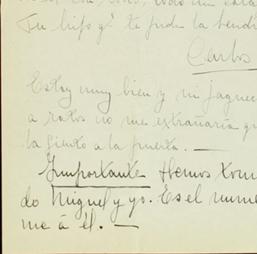 Tu hijo q' te pide la bendi
Carlos
Estoy muy bien y mi jaquec
a ratos no me extrañaría q
la siento a la puerta. —
Importante Hemos tom
do Miguel y yo. Es el nume
me á él. —